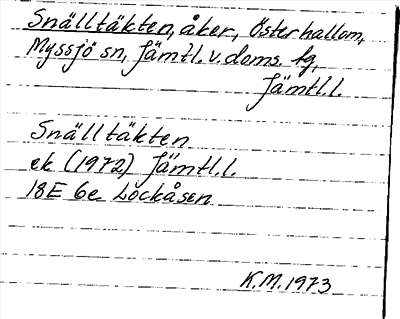 Snälltäkten, åker, Österhallom,
Myssjö sn, Jämtl. v. doms. fg,
Jämtl.l.
Snälltäkten
ek (1972) Jämtl.l.
18E 6e Lockåsen
K.M. 1973